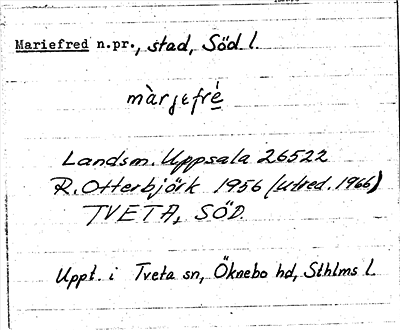 Mariefred n.pr., stad, Söd l.
màrjefrè
Landsm. Uppsala 26522
R. Otterbjörk 1956 (utred. 1966)
TVETA, SÖD.
Uppt. i Tveta sn, Öknebo hd, Sthlms l.